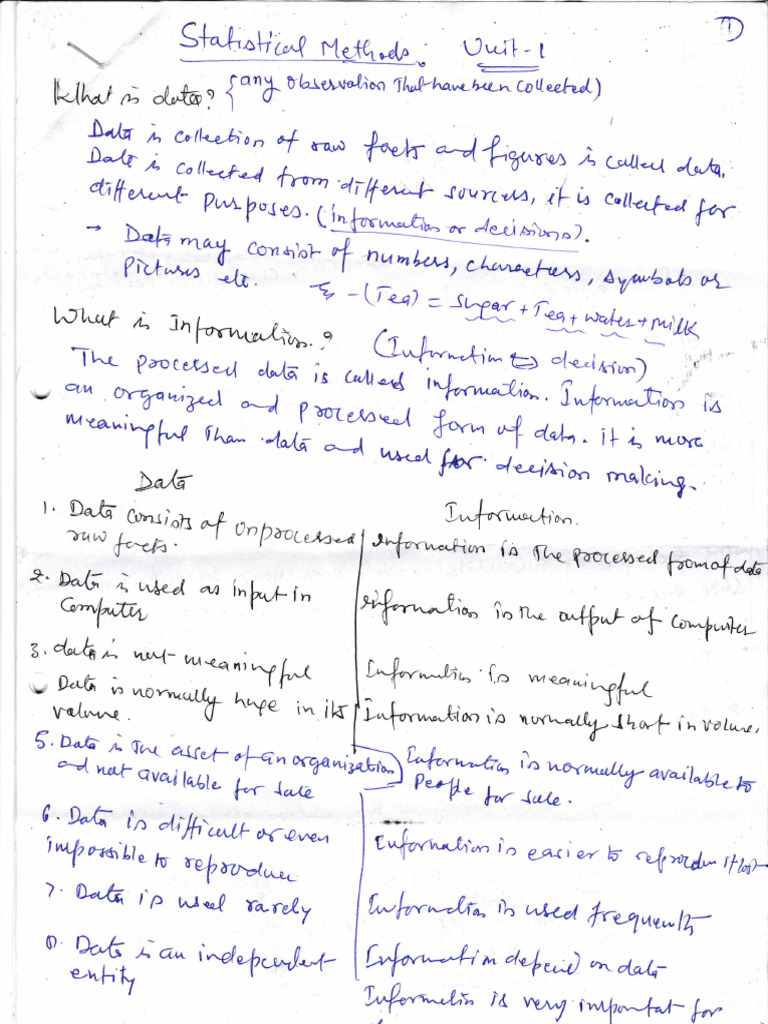 1
Statistical Methods: Unit-1
What is data? {any observation That have been collected)
Data is collection of raw facts and figures is called data.
Data is collected from different sources, it is collected for
different purposes. (information or decisions).
→ Data may consist of numbers, characters, symbols or
pictures etc. Eg - (Tea) = Sugar + Tea + water + milk
What is Information?
(Information ⇔ decision)
The processed data is called information. Information is
an organized and processed form of data. it is more
meaningful Than data and used for decision making.
Data Information.
1. Data consists of onprocessed information is The processed from of data
raw facts.
2. Data is used as input in information is the output of computer
Computer
3. data is not meaningful Information is meaningful
Data is normally huge in its Information is normally short in volume.
volume.
5. Data is The asset of an organization Information is normally available to
and not available for sale People for sale.
6. Data is difficult or even Information is easier to reproduce if lost
impossible to reproduce
7. Data is used rarely Information is used frequently
8. Data is an independent Information depend on data
entity
Information is very important for